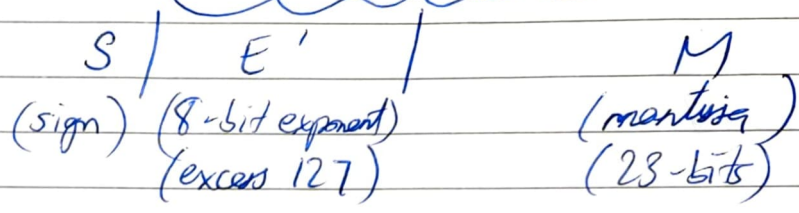 S | E' | M
(sign) (8-bit exponent) (mantissa)
(excess 127) (23-bits)